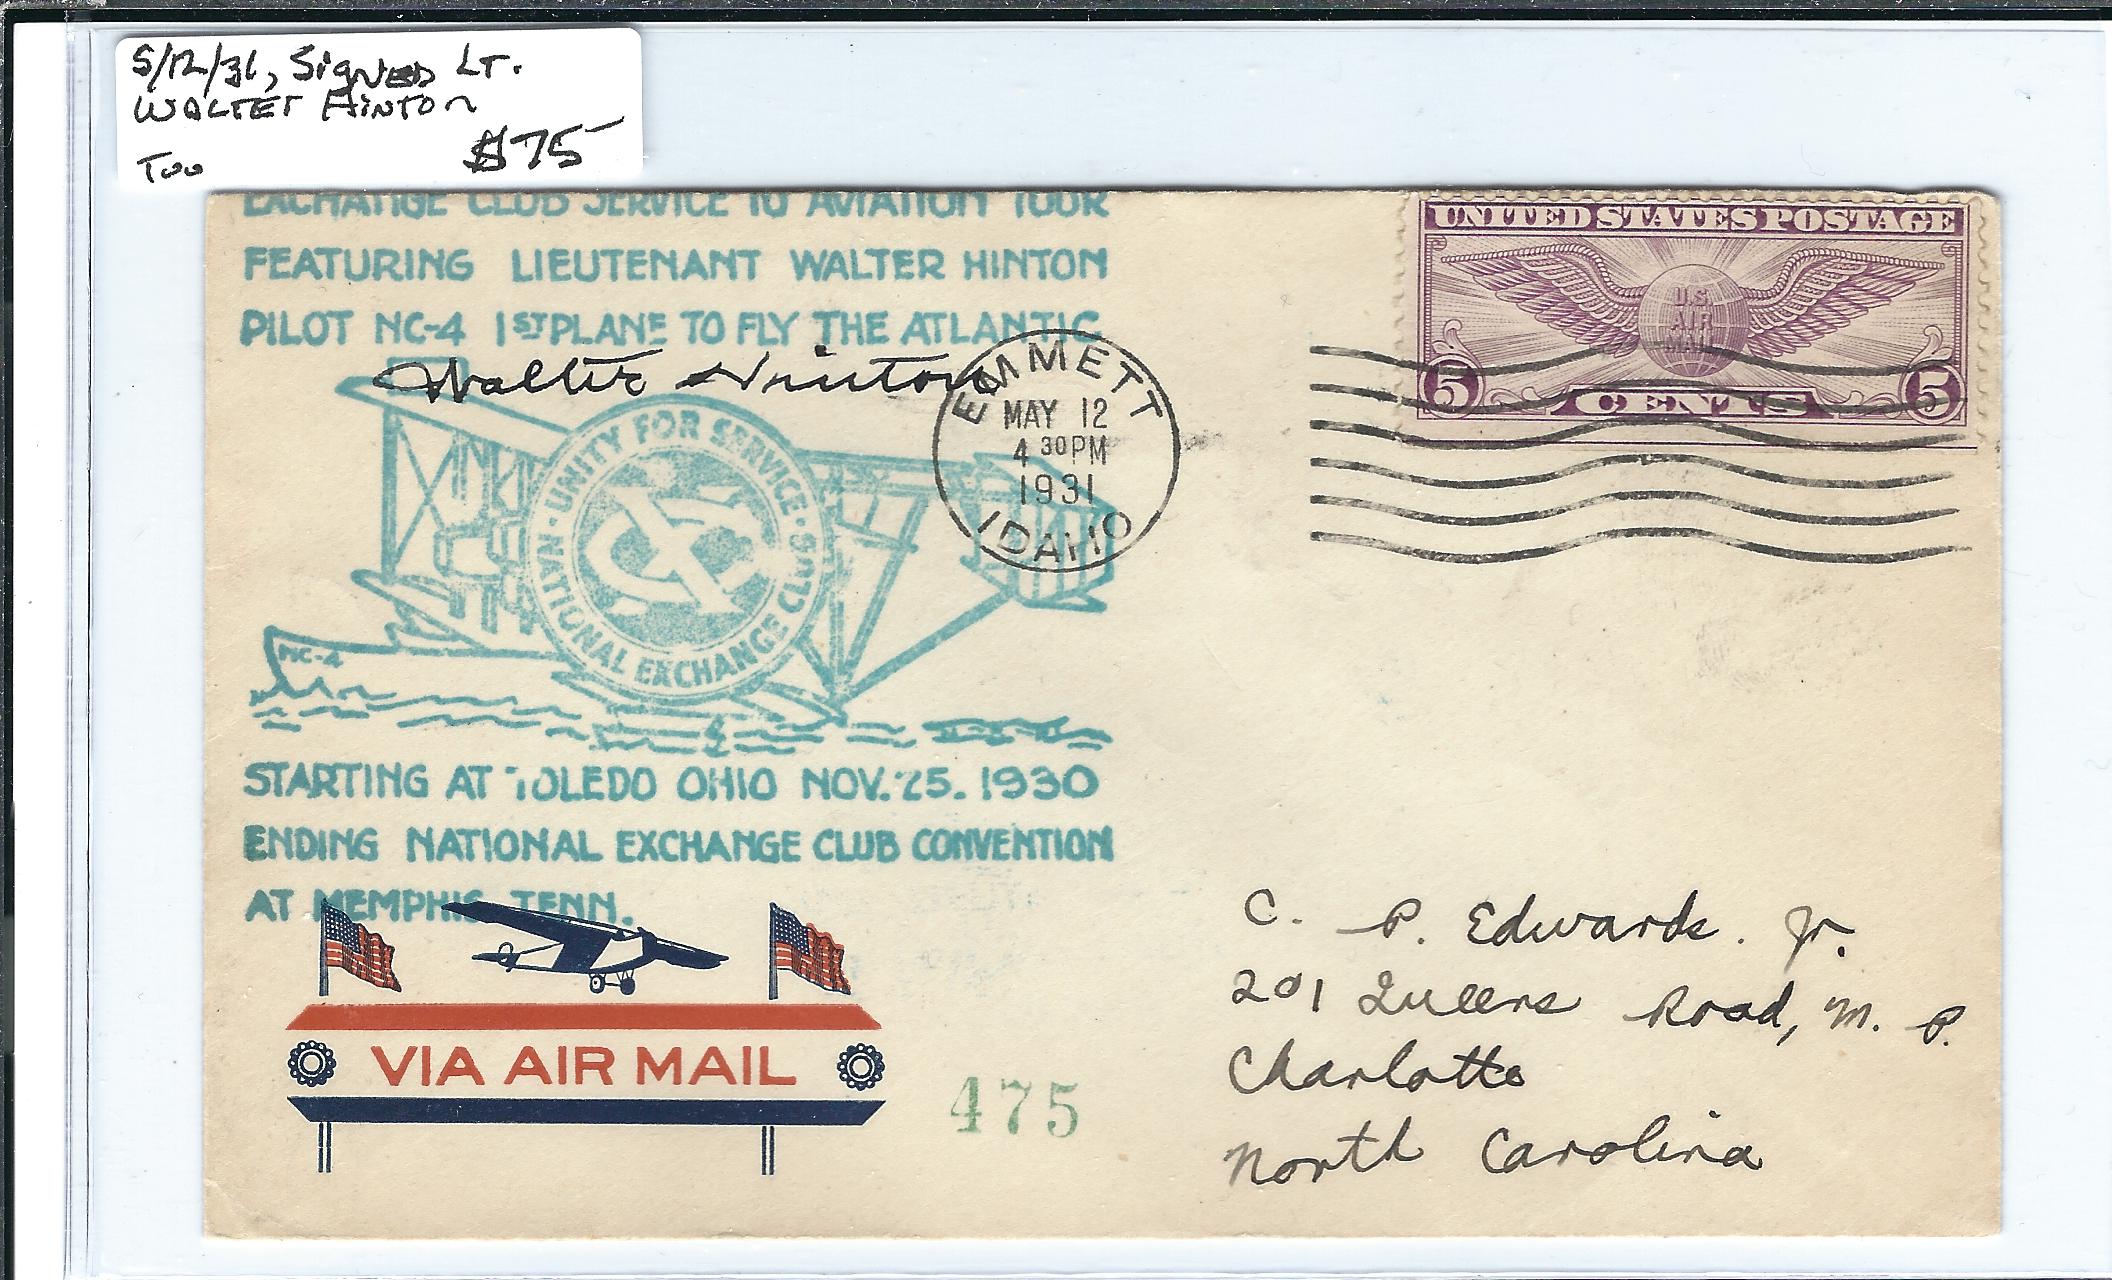 5/12/31, SIGNED LT.
WALTER HINTON
TOO $75
EXCHANGE CLUB SERVICE TO AVIATION TOUR
FEATURING LIEUTENANT WALTER HINTON
PILOT NC-4 1ST PLANE TO FLY THE ATLANTIC
Walter Hinton
UNITY FOR SERVICE
NATIONAL EXCHANGE CLUBS
NC-4
EMMETT
MAY 12
4 30PM
1931
IDAHO
UNITED STATES POSTAGE
U.S.
AIR
MAIL
5 CENTS 5
STARTING AT TOLEDO OHIO NOV. 25. 1930
ENDING NATIONAL EXCHANGE CLUB CONVENTION
AT MEMPHIS TENN.
VIA AIR MAIL
475
C. P. Edwards. Jr.
201 Queens Road, M. P.
Charlotte
North Carolina